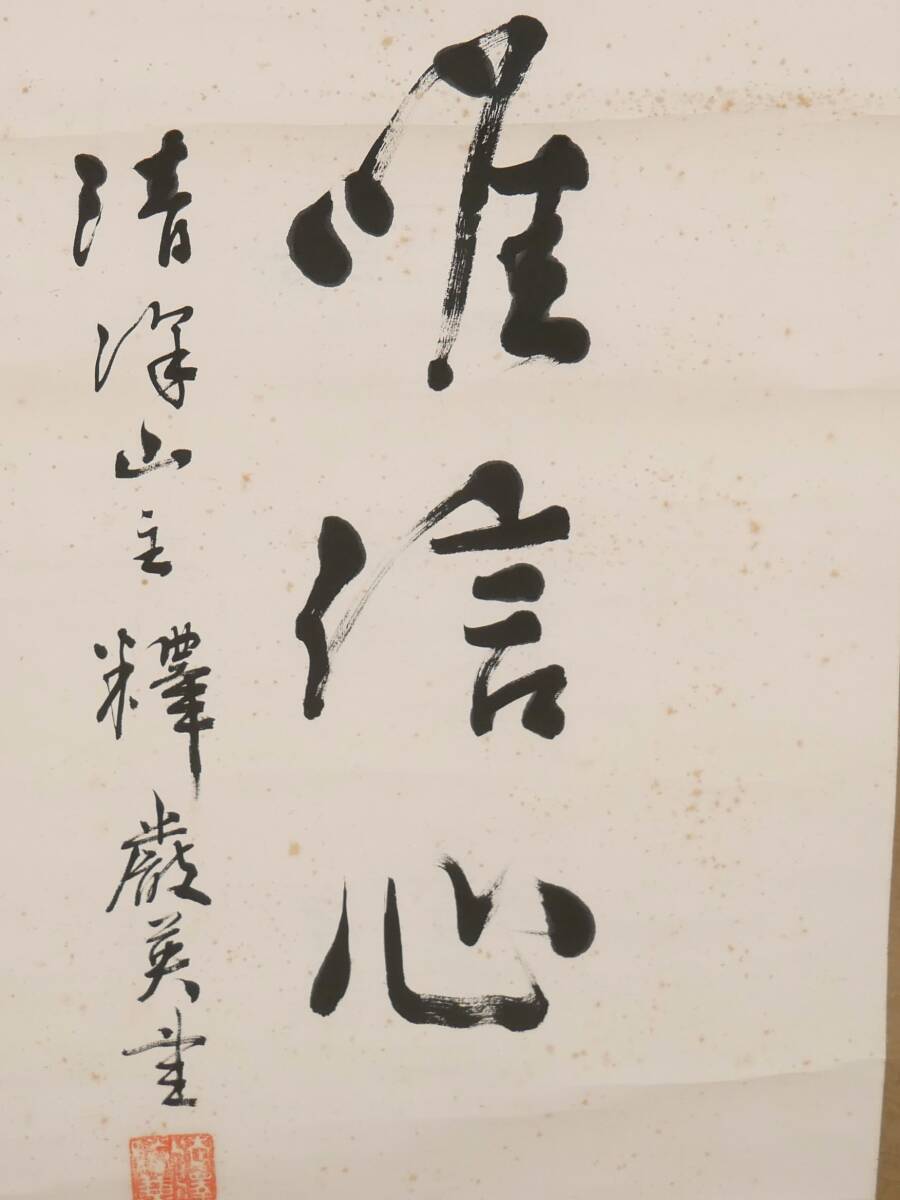 唯信心
清浄山主釋巖英書